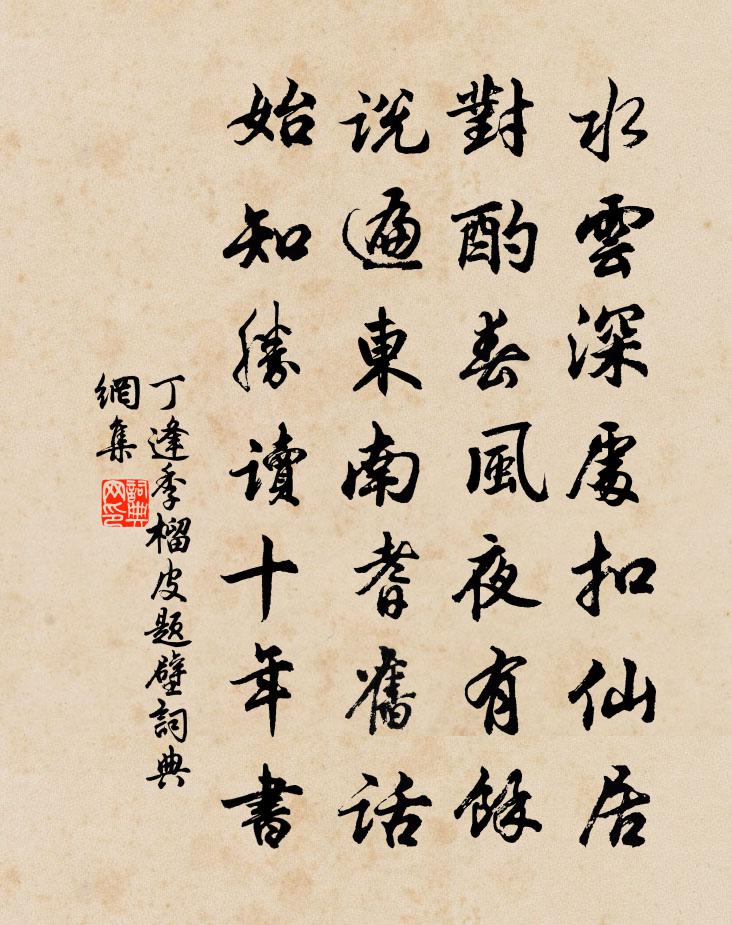 水雲深處扣仙居
對酌春風夜有餘
説遍東南耆舊話
始知勝讀十年書
丁逢季榴皮題壁詞典
網集
詞典
网印